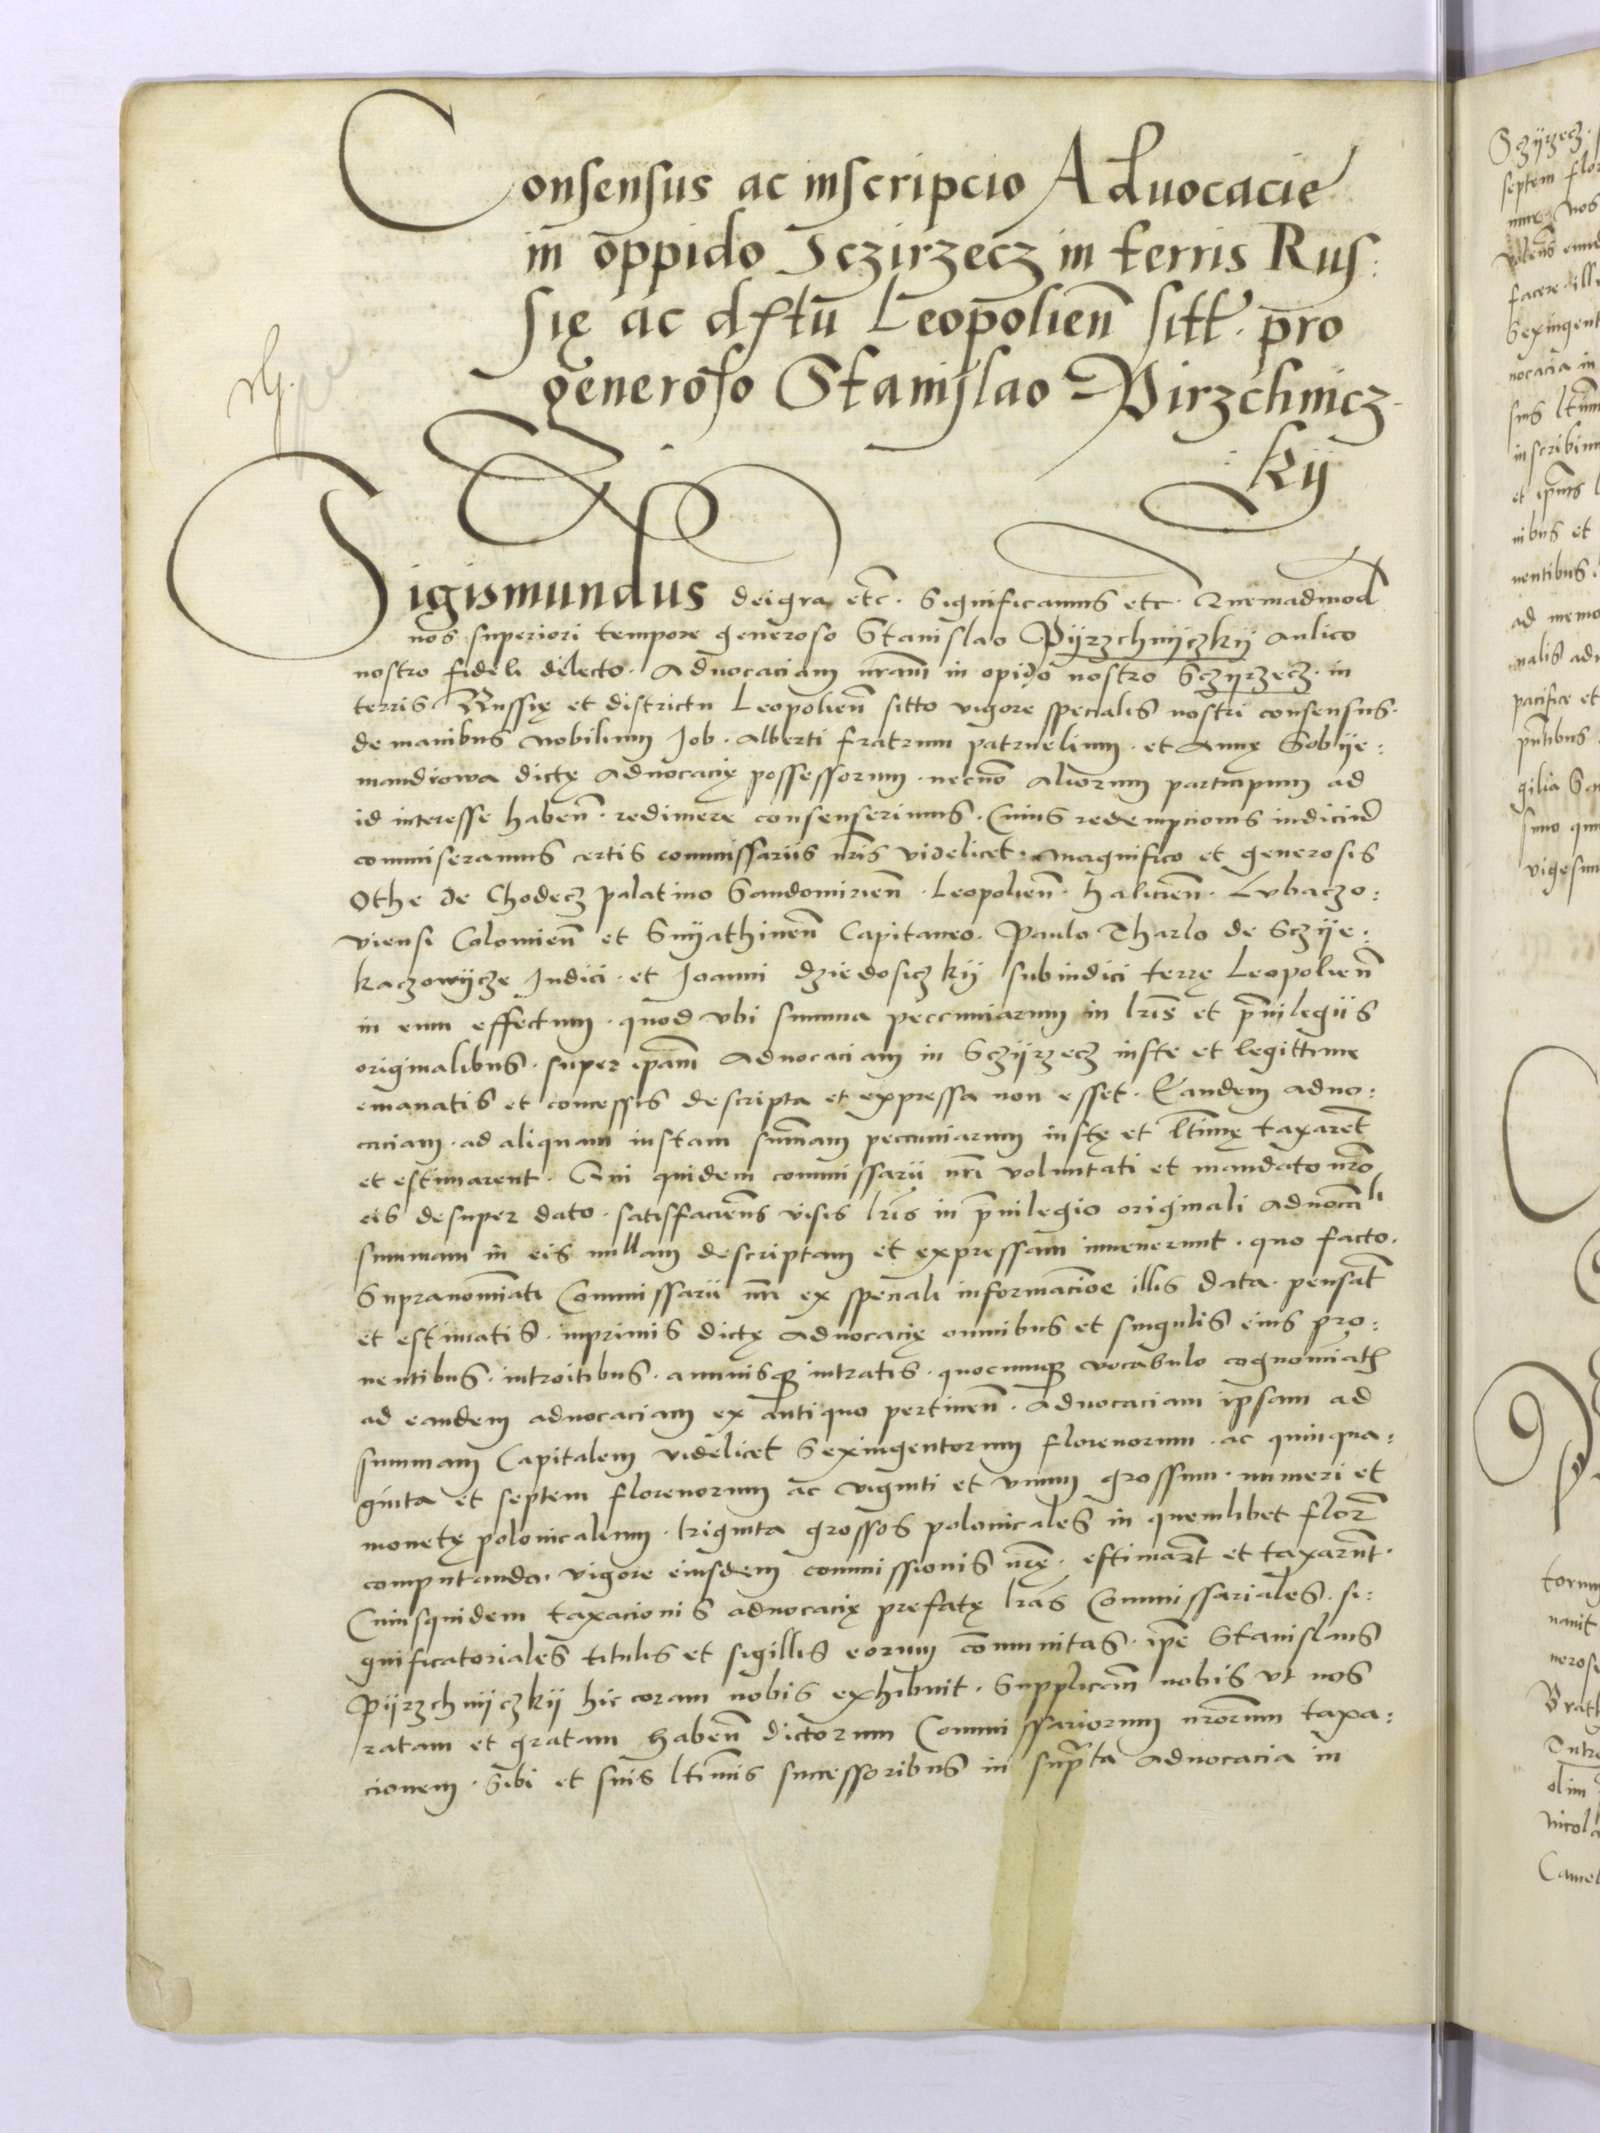 Consensus ac inscripcio Aduocacie
in oppido Sczirzecz in terris Rus:
się ac dstu Leopolien̄ sitt. pro
generoso Stanislao Pirzchnicz
kij
Sigismundus dei gra etc. Significamus etc. Quemadmod
nos superiori tempore generoso Stanislao Pijrzchnijczkij Aulico
nostro fideli dilecto. Aduocaciam nr̄am in opido nostro Sczijrzecz. in
terris Russię et districtu Leopolien̄ sitto vigore specialis nostri consensus.
de manibus Nobilium Job. Alberti fratrum patruelium. et Annę Sobije:
mandrowa dictę Aduocacię possessorum. necno Aliorum participum ad
id interesse haben̄. redimere consenserimus. Cuius redempcionis iudiciū
commiseramus certis commissariis nr̄is videlicet. Magnifico et generosis
Othe de Chodecz palatino Sandomirien̄. Leopolien̄. Halicien̄. Lubaczo:
viensi Colomien̄ et Snijathinen̄ Capitaneo. Paulo Tharlo de Sczije:
kaczowijcze Judici. et Joanni dziedosiczkij subiudici terrę Leopolien̄
in eum effectum. quod vbi summa peccuniarum in lr̄is et p̄uilegiis
originalibus. super ip̄am Aduocaciam in Sczijrzecz iuste et legittime
emanatis et concessis descripta et expressa non esset. Eandem aduo:
caciam. ad aliquam iustam sum̄am peccuniarum iustę et lt̄imę taxaren̄t
et estimarent. Qui quidem commissarii nr̄i voluntati et mandato nr̄o
eis desuper dato. satisfacien̄s visis lr̄is in p̄uilegio originali aduocāli
summam in eis nullam descriptam et expressam inuenerunt. quo facto.
Supranomīati Commissarii nr̄i ex speciali informacioē illis data. pensat̄
et estimatis. inprimis dictę aduocacię omnibus et singulis eius pro:
uentibus. introitibus. annuisq̄ intratis. quocumq̄ vocabulo cognomīatꝭ
ad eandem aduocaciam ex antiquo pertinen̄. Aduocaciam ipsam ad
summam Capitalem videlicet Sexingentorum florenorum. ac quinqua:
ginta et septem florenorum ac viginti et vnum grossum. numeri et
monetę polonicalium. triginta grossos polonicales in quemlibet flor̄
computando. vigore eiusdem commissionis nr̄ę. estimar̄t et taxar̄nt.
Cuiusquidem taxacionis aduocacię prefatę lr̄as Commissariales. si:
gnificatoriales titulis et sigillis eorum cōmunitas. ip̄e Stanislaus
Pijrzchnijczkij hic coram nobis exhibuit. Supplican̄ nobis vt nos
ratam et gratam haben̄ dictorum Commissariorum nr̄orum taxa:
cionem. Sibi et suis lt̄imis successoribus in sup̄ta aduocacia in